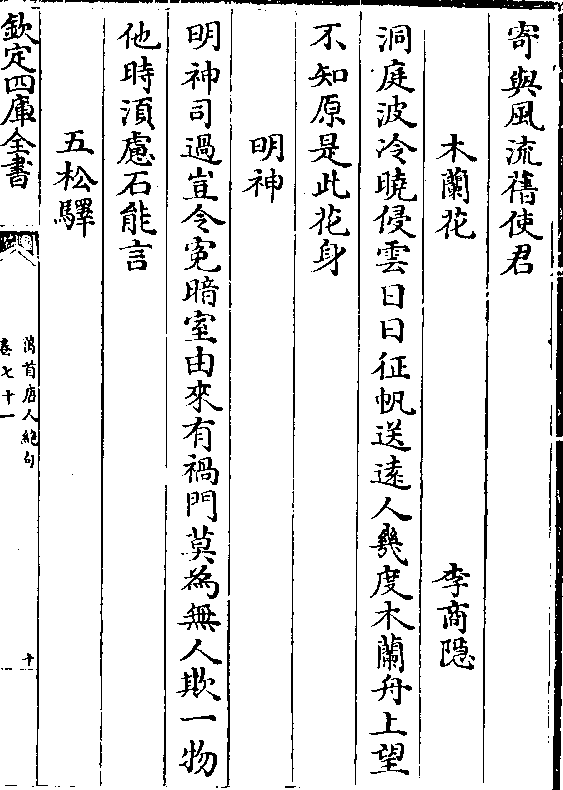 寄與風流舊使君
木蘭花 李商隱
洞庭波冷曉侵雲日日征帆送逺人幾度木蘭舟上望
不知原是此花身
明神
明神司過豈令寃暗室由來有禍門莫為無人欺一物
他時湏慮石能言
五松驛
欽定四庫全書
萬首唐人絶句
卷七十一
十